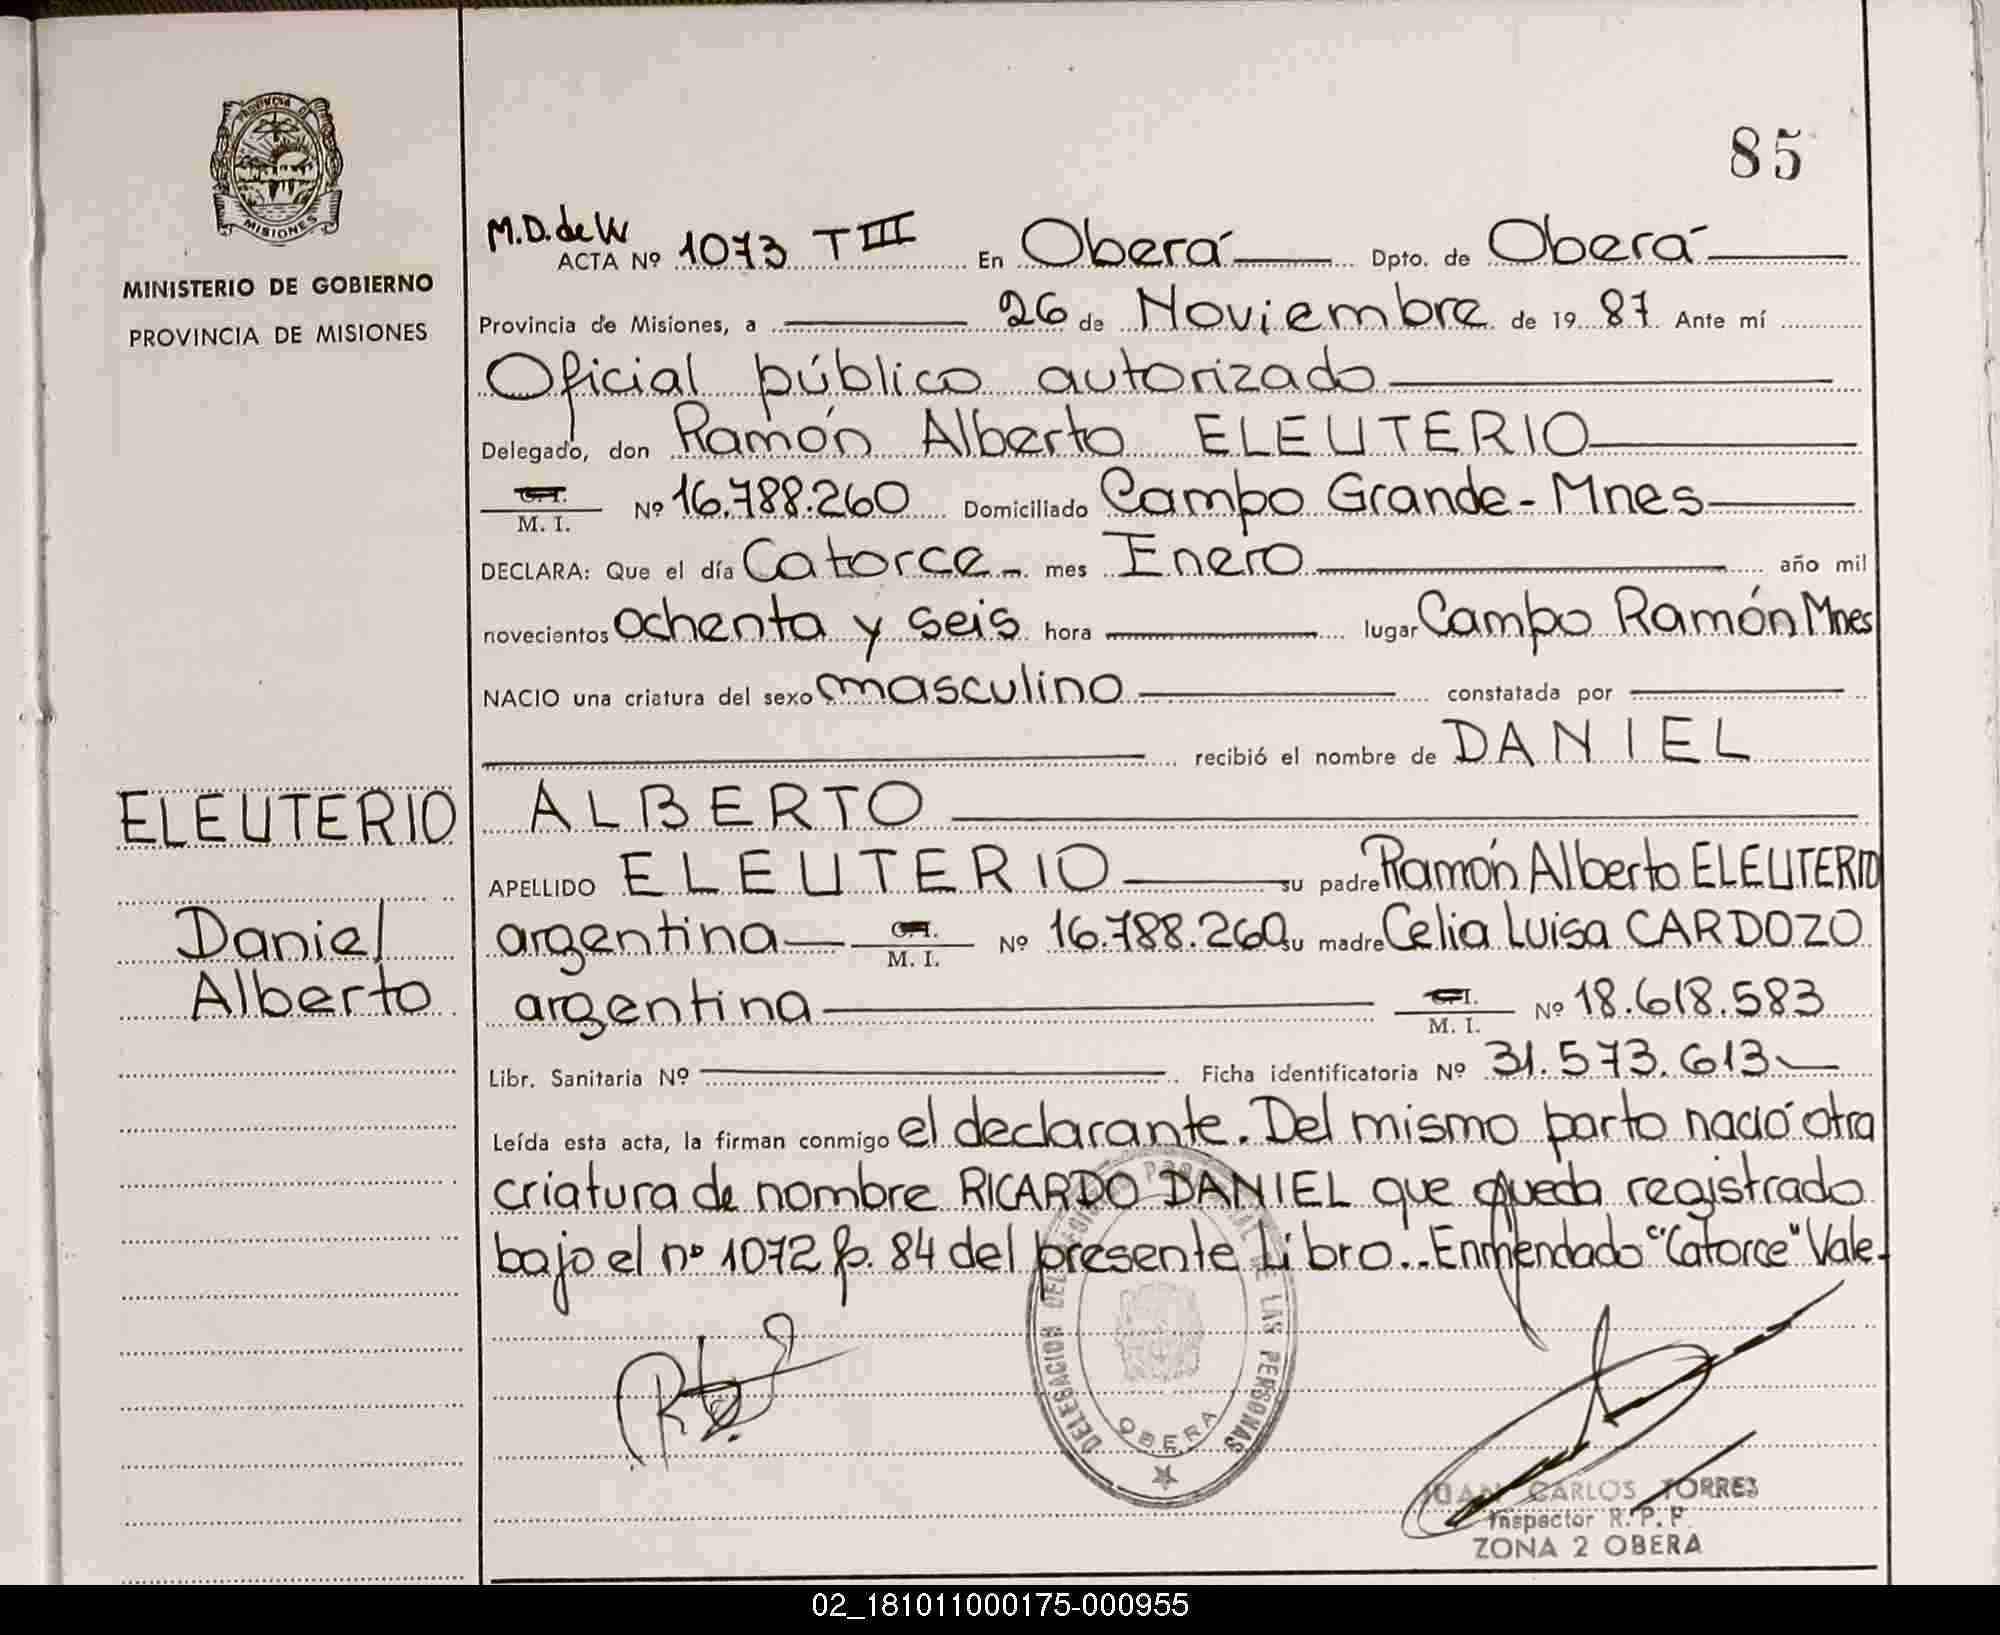 85
PROVINCIA DE
MISIONES
MINISTERIO DE GOBIERNO
PROVINCIA DE MISIONES
ELEUTERIO
Daniel
Alberto
M.D. de W
ACTA Nº 1073 T III En Oberá Dpto. de Oberá
Provincia de Misiones, a 26 de Noviembre de 1987 Ante mí
Oficial público autorizado
Delegado, don Ramón Alberto ELEUTERIO
C.I.
M. I. Nº 16.788.260 Domiciliado Campo Grande - Mnes
DECLARA: Que el día Catorce mes Enero año mil
novecientos ochenta y seis hora lugar Campo Ramón Mnes
NACIO una criatura del sexo masculino constatada por
recibió el nombre de DANIEL
ALBERTO
APELLIDO ELEUTERIO su padre Ramón Alberto ELEUTERIO
argentina C.I. M. I. Nº 16.788.260 su madre Celia Luisa CARDOZO
argentina C.I. M. I. Nº 18.618.583
Libr. Sanitaria Nº Ficha identificatoria Nº 31.573.613
Leída esta acta, la firman conmigo el declarante. Del mismo parto nació otra
criatura de nombre RICARDO DANIEL que queda registrado
bajo el nº 1072 fo. 84 del presente Libro.. Enmendado "Catorce" Vale.
DELEGACION DEL REGISTRO PROVINCIAL DE LAS PERSONAS
OBERA
JUAN CARLOS TORRES
Inspector R. P. P.
ZONA 2 OBERA
02_181011000175-000955